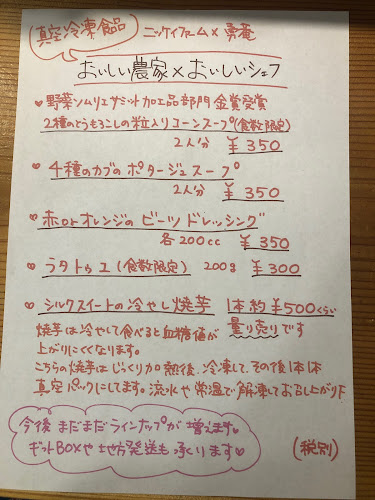 真空冷凍食品 ニッケイファーム×勇庵
おいしい農家×おいしいシェフ
♥野菜ソムリエサミット加工品部門金賞受賞
2種のとうもろこしの粒入りコーンスープ(食数限定)
2人分 ¥350
♥4種のカブのポタージュスープ
2人分 ¥350
♥赤orオレンジのビーツドレッシング
各200cc ¥350
♥ラタトゥエ(食数限定) 200g ¥300
♥シルクスイートの冷やし焼芋 1本約¥500くらい
焼芋は冷やして食べると血糖値が 量り売りです
上がりにくくなります。
こちらの焼芋はじっくり加熱後、冷凍して、その後1本1本
真空パックにしてます。流水や常温で解凍してお召し上がり下
今後まだまだラインナップが増えます♥
ギフトBOXや地方発送も承ります♥
(税別)